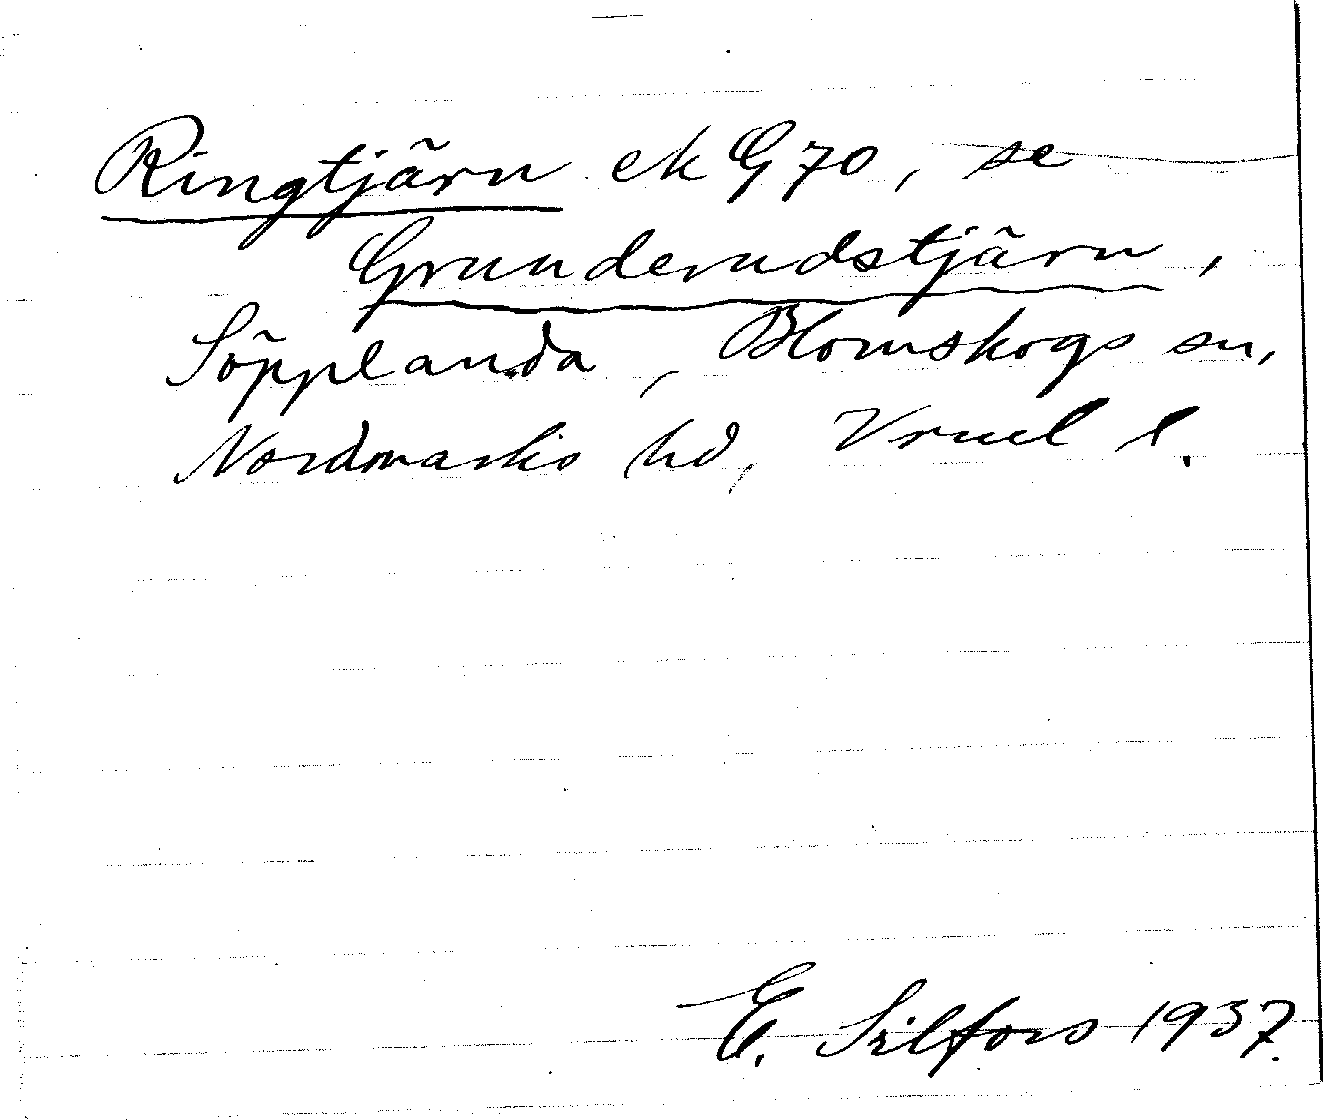 Ringtjärn ek G 70, se
Grunderudstjärn,
Söpplanda, Blomskogs sn,
Nordmarks hd, Vrml l.
E. Silfors 1937.